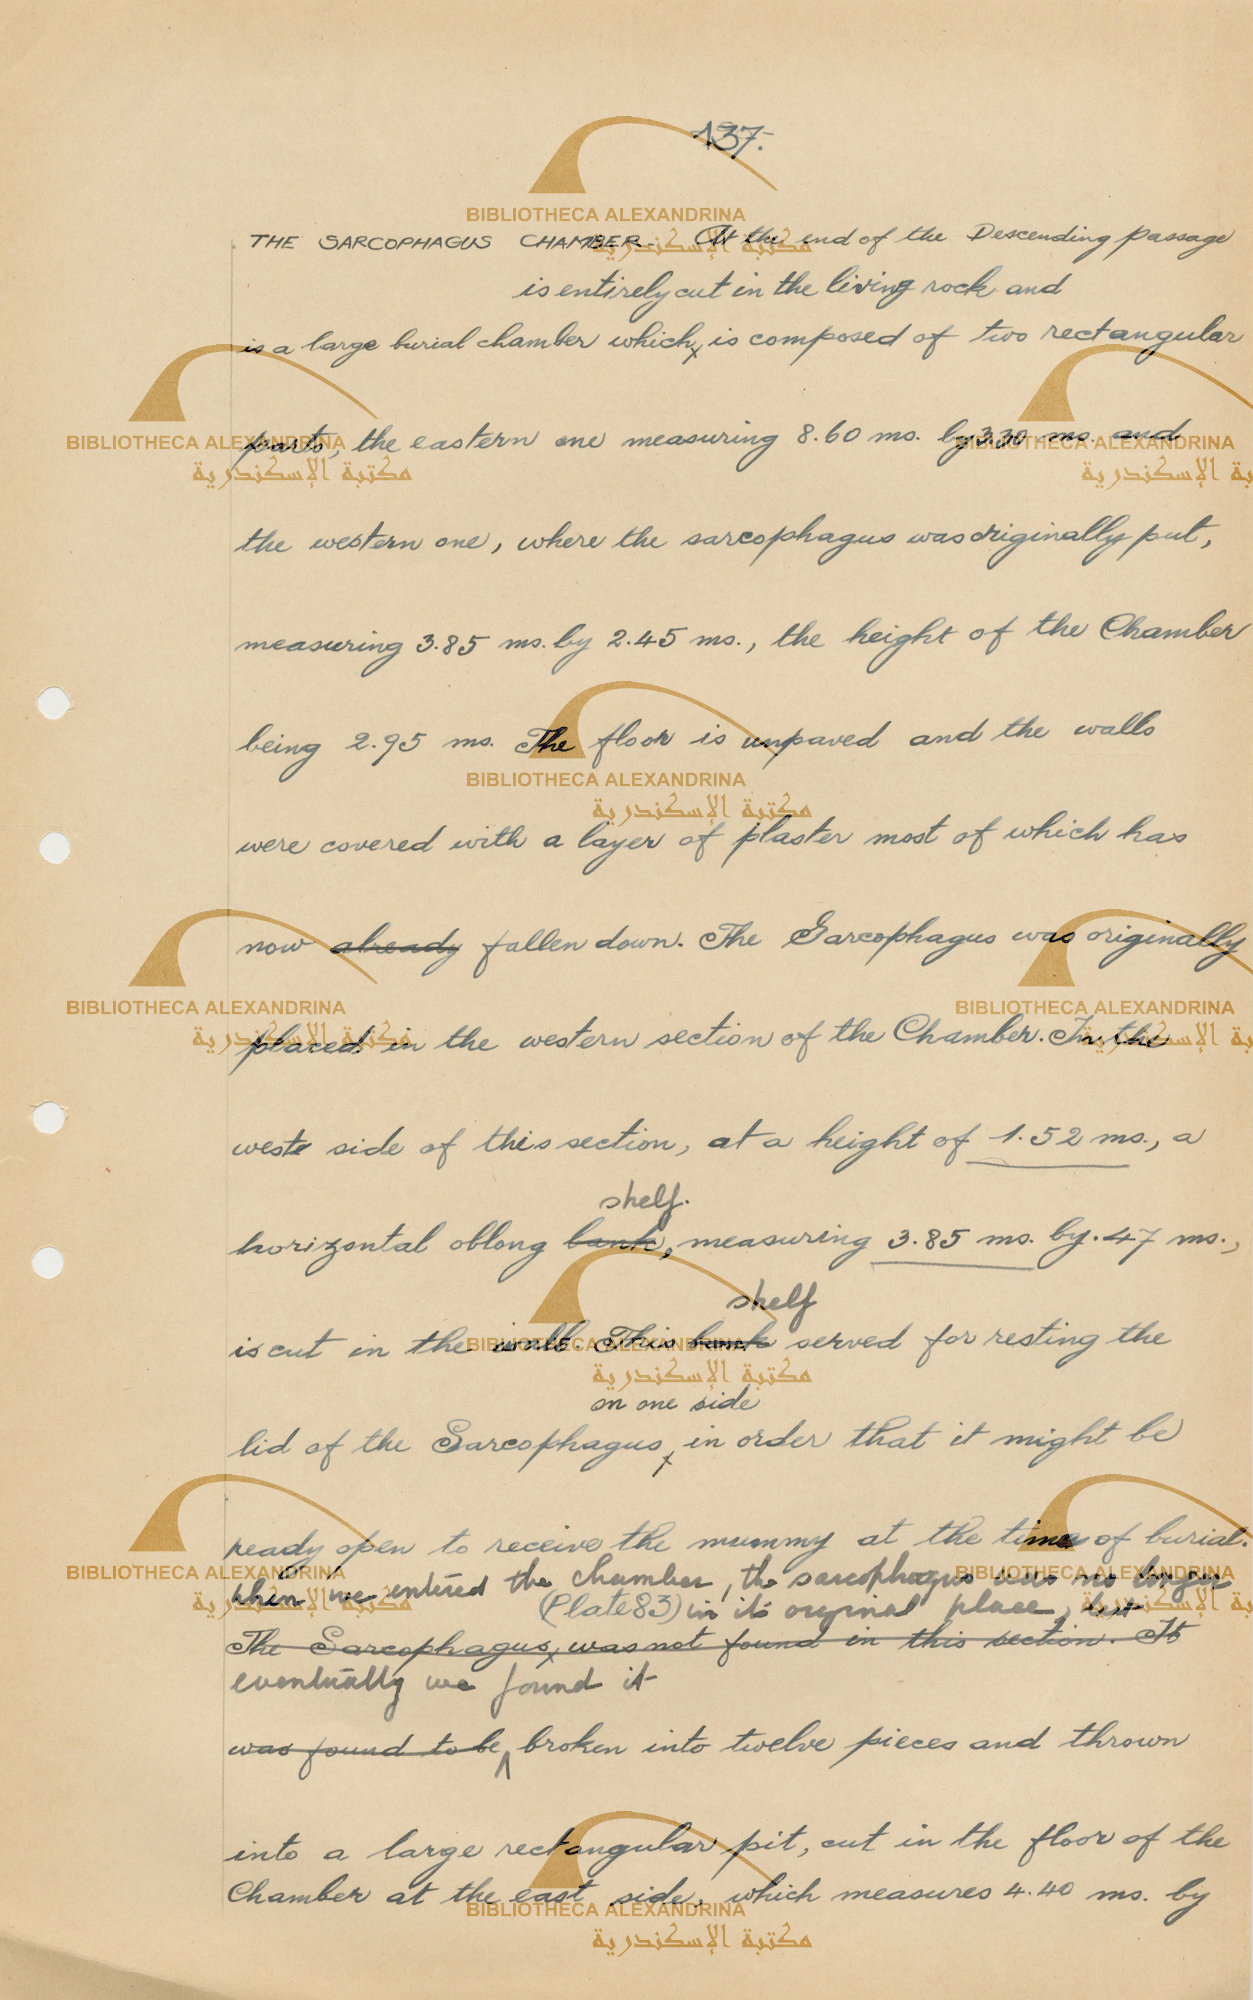 137.
THE SARCOPHAGUS CHAMBER. At the end of the Descending passage
is entirely cut in the living rock and
is a large burial chamber which x is composed of two rectangular
parts, the eastern one measuring 8.60 ms. by 3.30 ms. and
the western one, where the sarcophagus was originally put,
measuring 3.85 ms. by 2.45 ms., the height of the Chamber
being 2.95 ms. The floor is unpaved and the walls
were covered with a layer of plaster most of which has
now already fallen down. The Sarcophagus was originally
placed in the western section of the Chamber. In the
west side of this section, at a height of 1.52 ms., a
shelf.
horizontal oblong bank, measuring 3.85 ms. by .47 ms.,
shelf
is cut in the wall. This bank served for resting the
on one side
lid of the Sarcophagus x in order that it might be
ready open to receive the mummy at the time of burial.
when we entered the chamber, the sarcophagus was no longer
(Plate 83) in its original place, but
The Sarcophagus x was not found in this section. It
eventually we found it
was found to be broken into twelve pieces and thrown
into a large rectangular pit, cut in the floor of the
Chamber at the east side, which measures 4.40 ms. by
BIBLIOTHECA ALEXANDRINA
مكتبة الإسكندرية